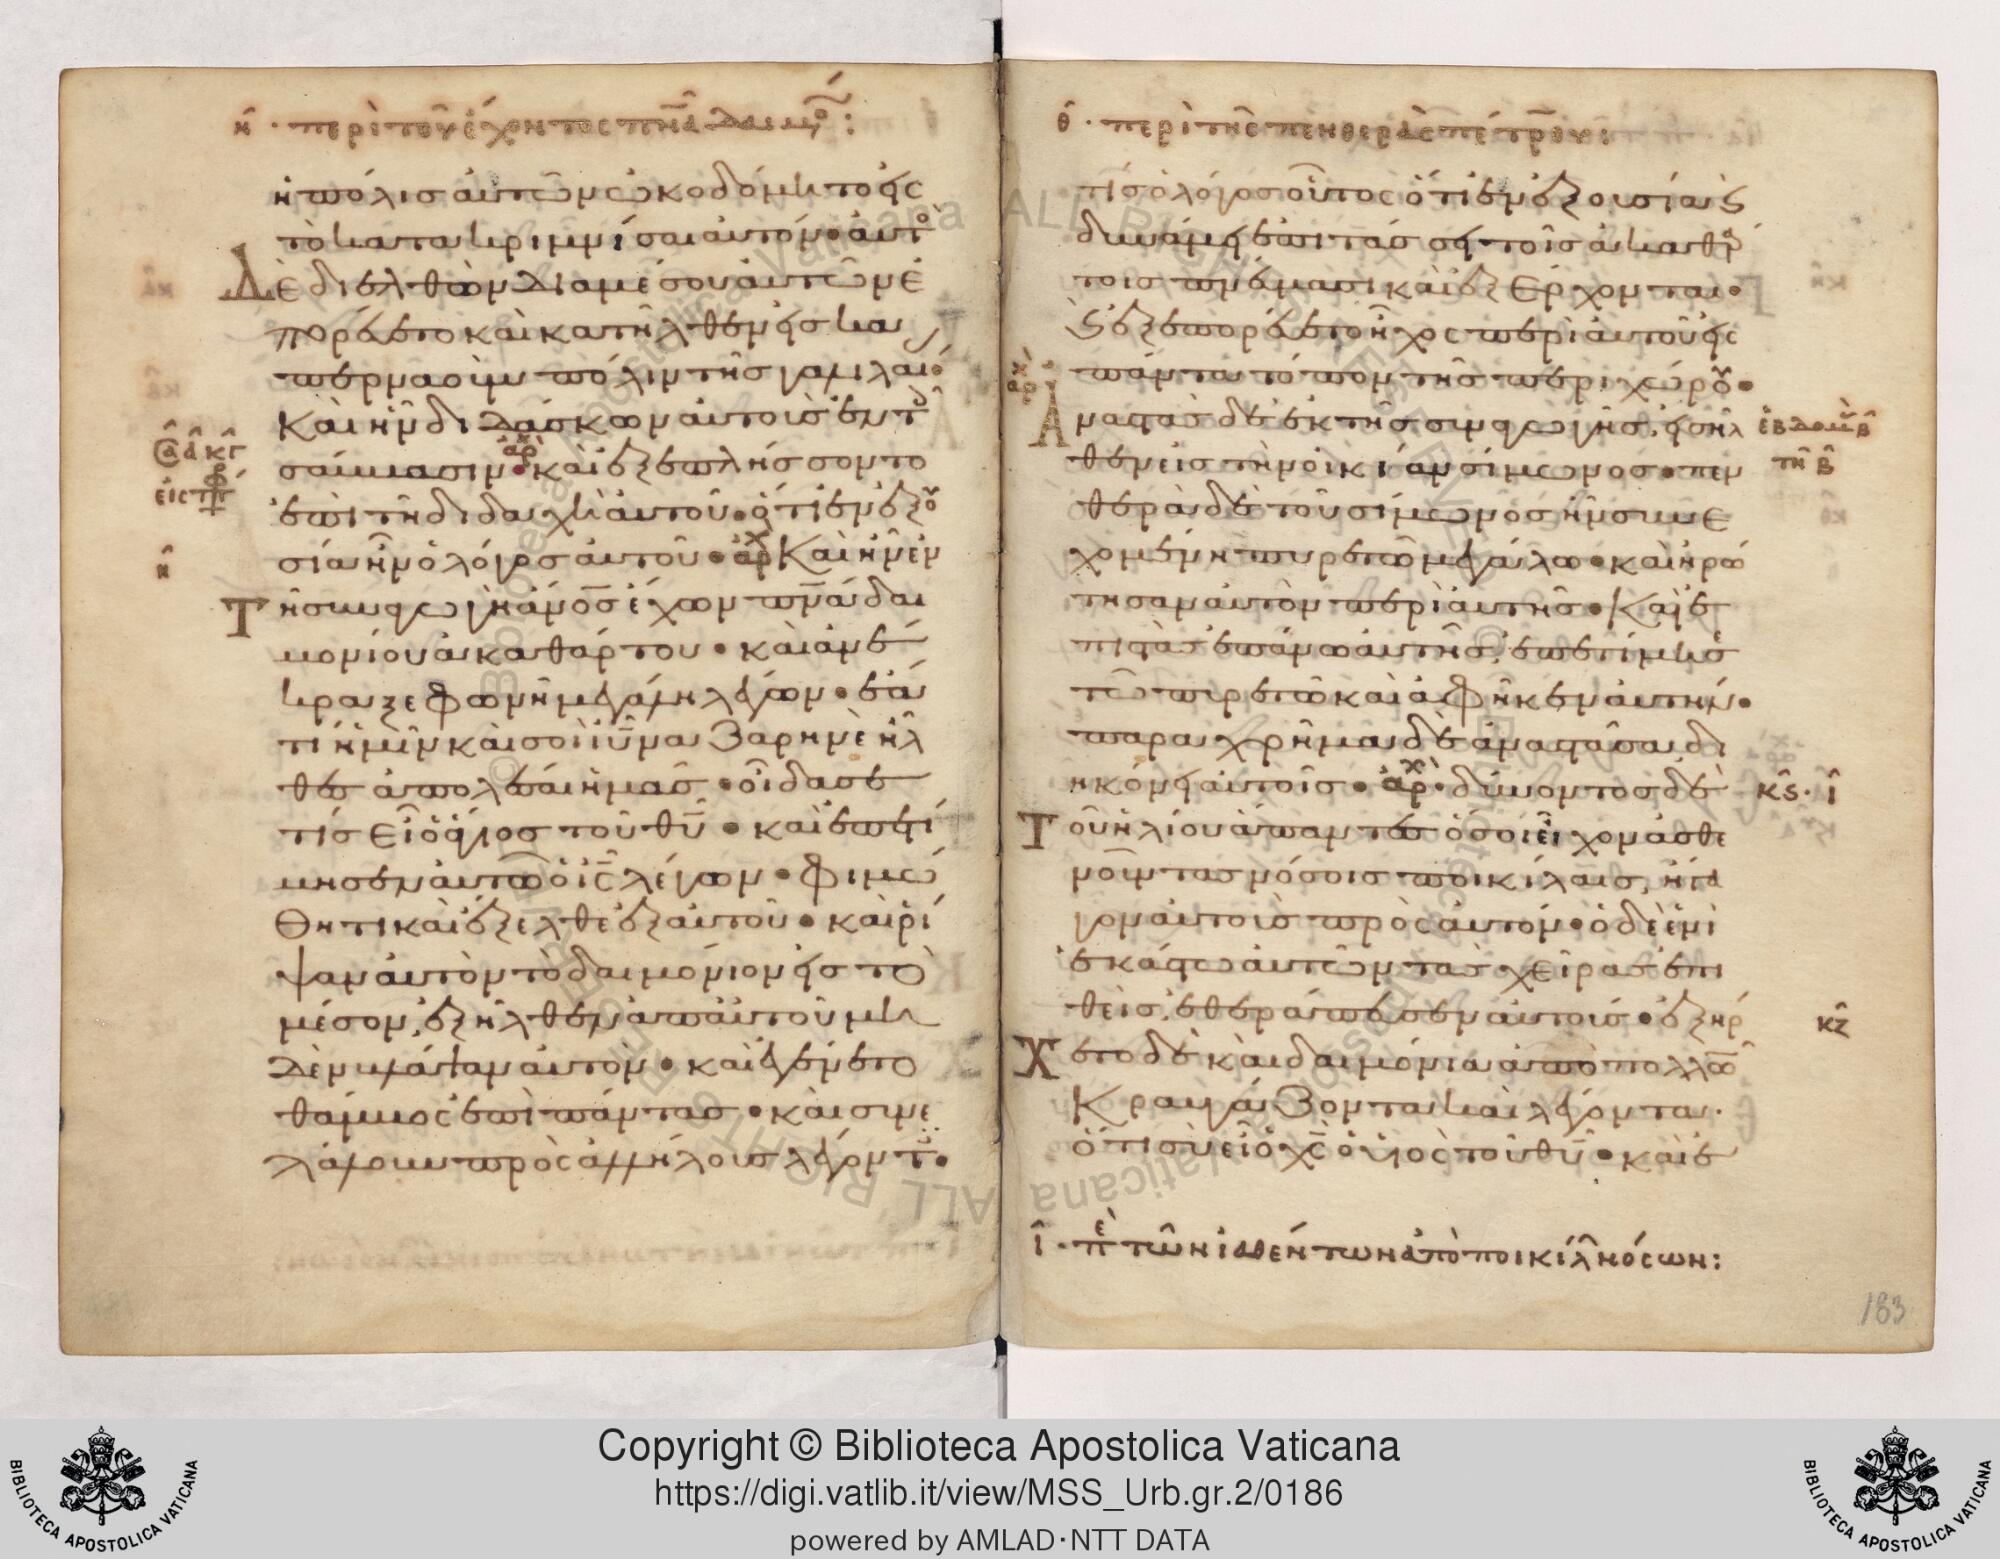 η̂ · περὶ τοῦ ἔχοντος πν̅α δαιμο̅ :
ἡ πόλις αὐτῶν ὠκοδόμητο εἰς
τὸ κατακριμνίσαι αὐτόν • αὐτο
Δὲ διελθὼν διαμέσου αὐτῶν ἐ
πορεύετο καὶ κατῆλθεν εἰς κα
περναοὺμ πόλιν τῆς γαλιλαί •
Καὶ ἦν διδάσκων αὐτοὺς ἐν τοῖς
ἀρχ
σάββασιν • καὶ ἐξεπλήσσοντο
ἐπὶ τῆ διδαχῆ αὐτοῦ • ὅτι ἐν ἐξου
σία ἦν ὁ λόγος αὐτοῦ • ἀρχ Καὶ ἦν ἐν
Τῆ συναγωγῆ ἄνο̅σ ἔχων πν̅α δαι
μονίου ἀκαθάρτου • καὶ ἀνέ
κραξε φωνῆ μεγάλη λέγων • ἔα
τί ἡμῖν καὶ σοὶ ιυ̅ ναζαρηνὲ ἦλ
θες ἀπολέσαι ἡμᾶς • οἶδα σε
τίς εἶ ὁ ἅγιος τοῦ θυ̅ • καὶ ἐπετί
μησεν αὐτῶ ὁ ις̅ λέγων • φιμώ
θητι καὶ ἔξελθε ἐξαὐτοῦ • καὶ ρί
ψαν αὐτὸν τὸ δαιμόνιον εἰς τὸ
μέσον, ἐξῆλθεν ἀπ' αὐτοῦ μη
δὲν βλάψαν αὐτὸν • καὶ ἐγένετο
θάμβος ἐπὶ πάντας • καὶ συνε
λάλουν πρὸς ἀλλήλους λέγοντ •
κγ̂
η̂
θ̂ · περὶ τῆς πενθερᾶς πέτρου :
τίς ὁ λόγος οὗτος ὅτι ἐν ἐξουσία ϗ
δυνάμει ἐπιτάσσει τοῖς ἀκαθάρ
τοις πνεύμασι καὶ ἐξέρχονται •
ϗ ἐξεπορεύετο ἦχος περὶ αὐτοῦ εἰς
πάντα τόπον τῆς περιχώρου •
ἀρχ
Ἀναστὰς δὲ ἐκ τῆς συναγωγῆς, εἰσῆλ
θεν εἰς τὴν οἰκίαν σίμωνος • πεν
θερὰ δὲ τοῦ σίμωνος ἦν συνε
χομένη πυρετῶ μεγάλω • καὶ ἠρώ
τησαν αὐτὸν περὶ αὐτῆς • Καὶ ἐ
πιστὰς ἐπάνω αὐτῆς, ἐπετίμησε
τῶ πυρετῶ καὶ ἀφῆκεν αὐτήν •
παραχρῆμα δὲ ἀναστᾶσα δι
ηκόνει αὐτοῖς • ἀρχ • δύνοντος δὲ
Τοῦ ἡλίου ἅπαντες ὅσοι εἶχον ἀσθε
νοῦντας νόσοις ποικίλαις, ἤγα
γον αὐτοὺς πρὸς αὐτόν • ὁ δὲ ἑνὶ
ἑκάστω αὐτῶν τὰς χεῖρας ἐπι
θεὶς, ἐθεράπευσεν αὐτούς • ἐξήρ
Χετο δὲ καὶ δαιμόνια ἀπὸ πολλῶ
Κραυγάζοντα καὶ λέγοντα ·
ὅτι σὺ εἶ ὁ χς̅ ὁ υἱὸς τοῦ θυ̅ • καὶ ἐ
τῆ β̂
κς̂ · ι̂
κζ̂
ι̂ · πε τῶν ἰαθέντων ἀπὸ ποικίλ νόσων :
183
Copyright © Biblioteca Apostolica Vaticana
https://digi.vatlib.it/view/MSS_Urb.gr.2/0186
powered by AMLAD·NTT DATA
BIBLIOTECA APOSTOLICA VATICANA
BIBLIOTECA APOSTOLICA VATICANA